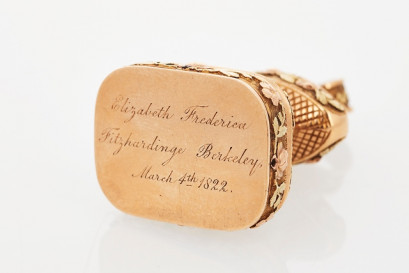 Elizabeth Frederica
Fitzhardinge Berkeley,
March 4th 1822.